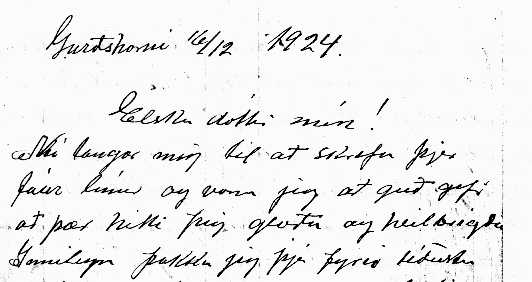 Garðshorni 16/12 1924.
Elsku dóttir mín!
Nú langar mig til at skrifa þjer
fáar línur og vona jeg at guð gefi
at þær hitti þig glaða og heilbrygða
þakka jeg þjer fyrir